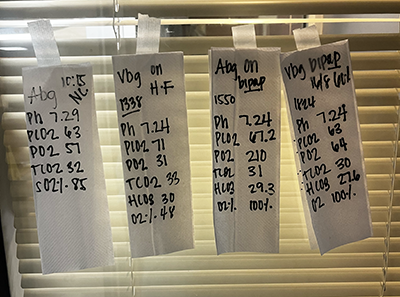 10:15
Abg NC
Ph 7.29
PCO2 63
PO2 57
TCO2 32
SO2% 85
Vbg on
H.F
1338
Ph 7.24
PCO2 71
PO2 31
TCO2 33
HCO3 30
O2% 48
Abg on
bipap
1550
Ph 7.24
PCO2 67.2
PO2 210
TCO2 31
HCO3 29.3
O2% 100%
Vbg bipap
60%
Ph 7.24
PCO2 63
PO2 64
TCO2 30
HCO3 27.6
O2 100%